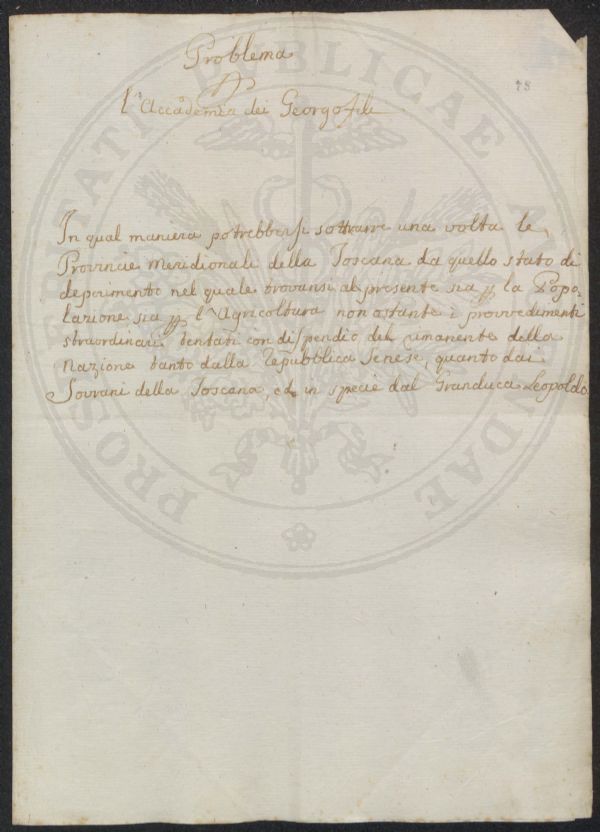 Problema
p
L'Accademia dei Georgofili
78
In qual maniera potrebbersi sottrarre una volta le
Provincie meridionali della Toscana da quello stato di
deperimento nel quale trovansi al presente sia p la Popo=
lazione sia p l'Agricoltura non ostante i provvedimenti
straordinari tentati con dispendio del rimanente della
Nazione tanto dalla Repubblica Senese, quanto dai
Sovrani della Toscana, ed in specie dal Granduca Leopoldo
PROSPERITATI PUBLICAE AUGENDAE